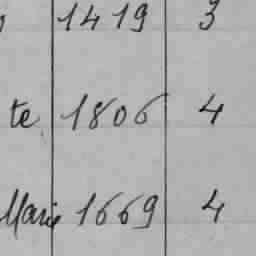 1419 3
te 1806 4
Marie 1669 4